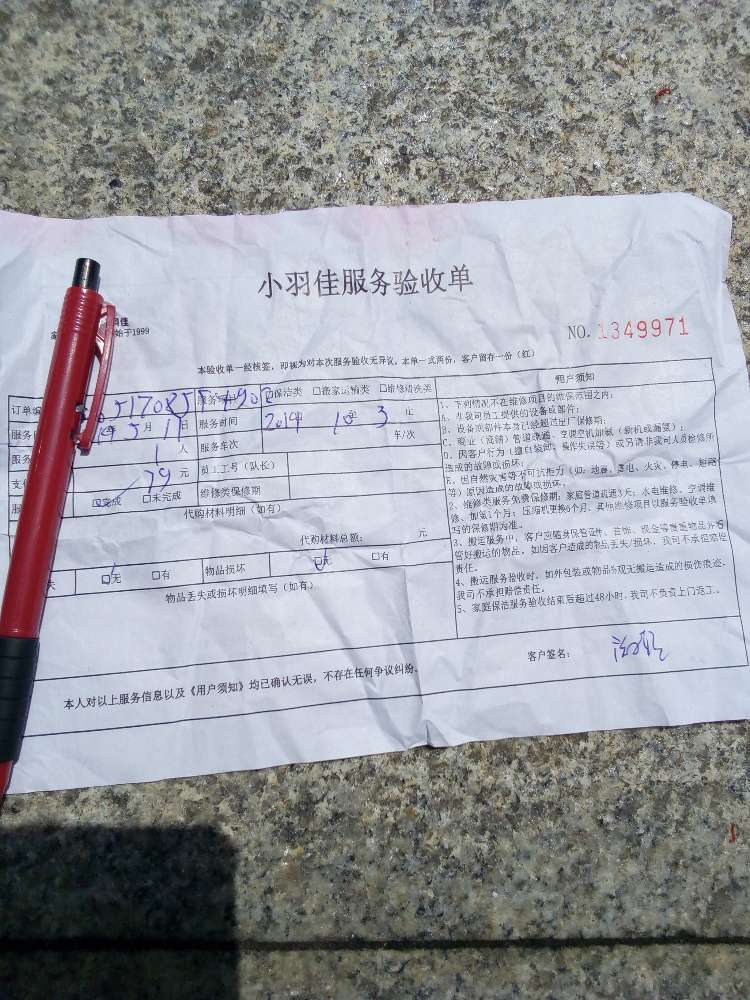 小羽佳服务验收单
始于1999
NO. 1349971
本验收单一经核签，即视为对本次服务验收无异议，本单一式两份，客户留存一份（红）
订单编
保洁类 □搬家运输类 □维修清洗类
5月11日 服务时间
人 服务车次 车/次
79元 员工工号（队长）
☑完成 □未完成 维修类保修期
代购材料明细（如有）
代购材料总额： 元
☑无 □有 物品损坏 ☑无 □有
物品丢失或损坏明细填写（如有）
用户须知
1、下列情况不在维修项目的质保范围之内：
A、非我司员工提供的设备或部件；
B、设备或部件本身已经超过出厂保修期；
D、因客户行为（擅自装卸、操作失误等）或另请非我司人员检修所
造成的故障或损坏；
E、因自然灾害等不可抗拒力（如：地震、雷电、火灾、停电、短路
等）原因造成的故障或损坏。
2、维修类服务免费保修期：家庭管道疏通3天；水电维修、空调维
修、加氟1个月；压缩机更换6个月，其他维修项目以服务验收单填
写的保修期为准。
3、搬运服务中，客户应随身保管证件、首饰、现金等贵重物品并看
管好搬运的物品，如因客户造成的物品丢失/损坏，我司不承担赔偿
责任。
4、搬运服务验收时，如外包装或物品外观无搬运造成的损伤痕迹，
我司不承担赔偿责任。
5、家庭保洁服务验收结束后超过48小时，我司不负责上门返工。
本人对以上服务信息以及《用户须知》均已确认无误，不存在任何争议纠纷。
客户签名：